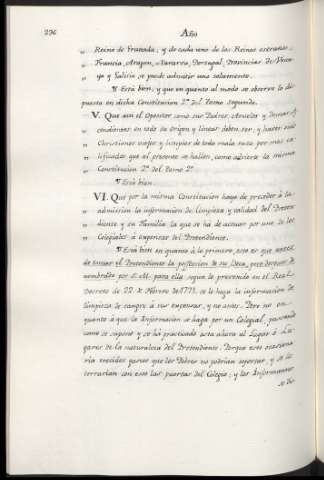 236
Año
" Reino de Granada; y de cada uno de los Reinos extraños,
" Francia, Aragon, Navarra, Portugal, Provincias de Vizca-
" ya y Galicia se puede admitir uno solamente.
¶ Está bien, y que en quanto al modo se observe lo dis
puesto en dicha Constitucion 2ª del Tomo segundo.
V. Que aun el Opositor como sus Padres, Abuelos y demas As
" cendientes en todo su origen y linear deben ser, y haver sido
" Christianos viejos y limpios de toda mala raza por mas ca-
" lificados que al presente se hallen, como advierte la misma
" Constitucion 2ª del tomo 2º
¶ Está bien.
VI. Que por la misma Constitucion haya de preceder á la
" admision la informacion de limpieza y calidad del Preten
" diente y su Familia la que se há de actuar por uno de los
" Colegiales á expensas del Pretendiente.
¶ Está bien en quanto á lo primero, esto es que antes
de tomar el Pretendiente la posesion de su Beca, pero despues de
nombrado por S. M. para ella segun lo prevenido en el Real
Decreto de 22 de Febrero de 1773, se le haga la informacion de
limpieza de sangre á sus expensas, y no antes. Pero no en
quanto á que la Informacion se haga por un Colegial, pasando
como se supone y se há practicado asta ahora al Lugar ó Lu-
gares de la naturaleza del Pretendiente. Porque esto ocasiona
ria crecidos gastos que los Padres no podrian soportar, y se les
cerrarian con esto las puertas del Colegio; y los Informantes